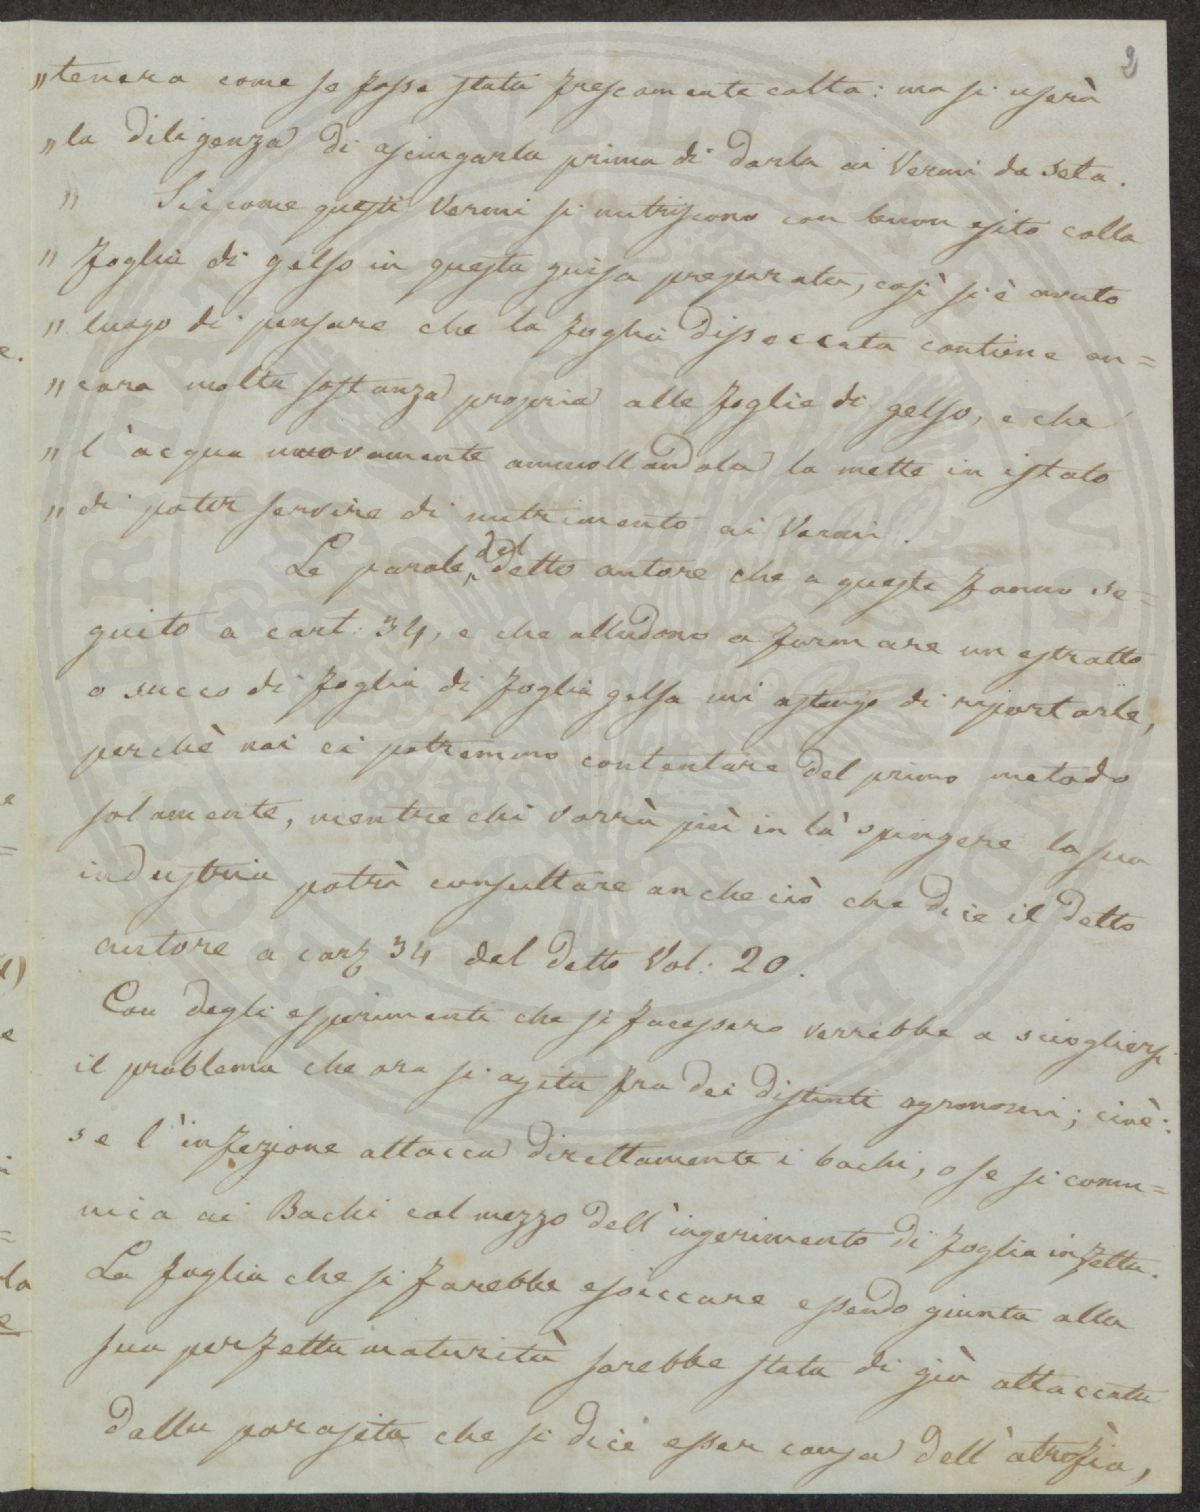 2
„ tenera come se fosse stata frescamente colta: ma si userà
„ la diligenza di asciugarla prima di darla ai Vermi da seta.
„ Siccome questi Vermi si nutriscono con buon esito colla
„ foglia di gelso in questa guisa preparata, così si è avuto
„ luogo di pensare che la foglia disseccata contiene an=
„ cora molta sostanza propria alle foglie di gelso, e che
„ l'acqua nuovamente ammollandola la mette in istato
„ di poter servire di nutrimento ai Vermi.
Le parole, del detto autore che a queste fanno se=
guito a cart: 34, e che alludono a formare un estratto
o succo di foglia di foglia gelsa mi astengo di riportarle,
perchè noi ci potremmo contentare del primo metodo
solamente, mentre chi vorrà più in là spingere la sua
industria potrà consultare anche ciò che dice il detto
autore a car 34 del detto Vol: 20.
Con degli esperimenti che si facessero verrebbe a sciogliersi
il problema che ora si agita fra dei distinti agronomi; cioè:
se l'infezione attacca direttamente i bachi, o se si comu=
nica ai Bachi col mezzo dell'ingerimento di foglia infetta.
La foglia che si farebbe essiccare essendo giunta alla
sua perfetta maturità sarebbe stata di già attaccata
dalla parasita che si dice esser causa dell'atrofia,